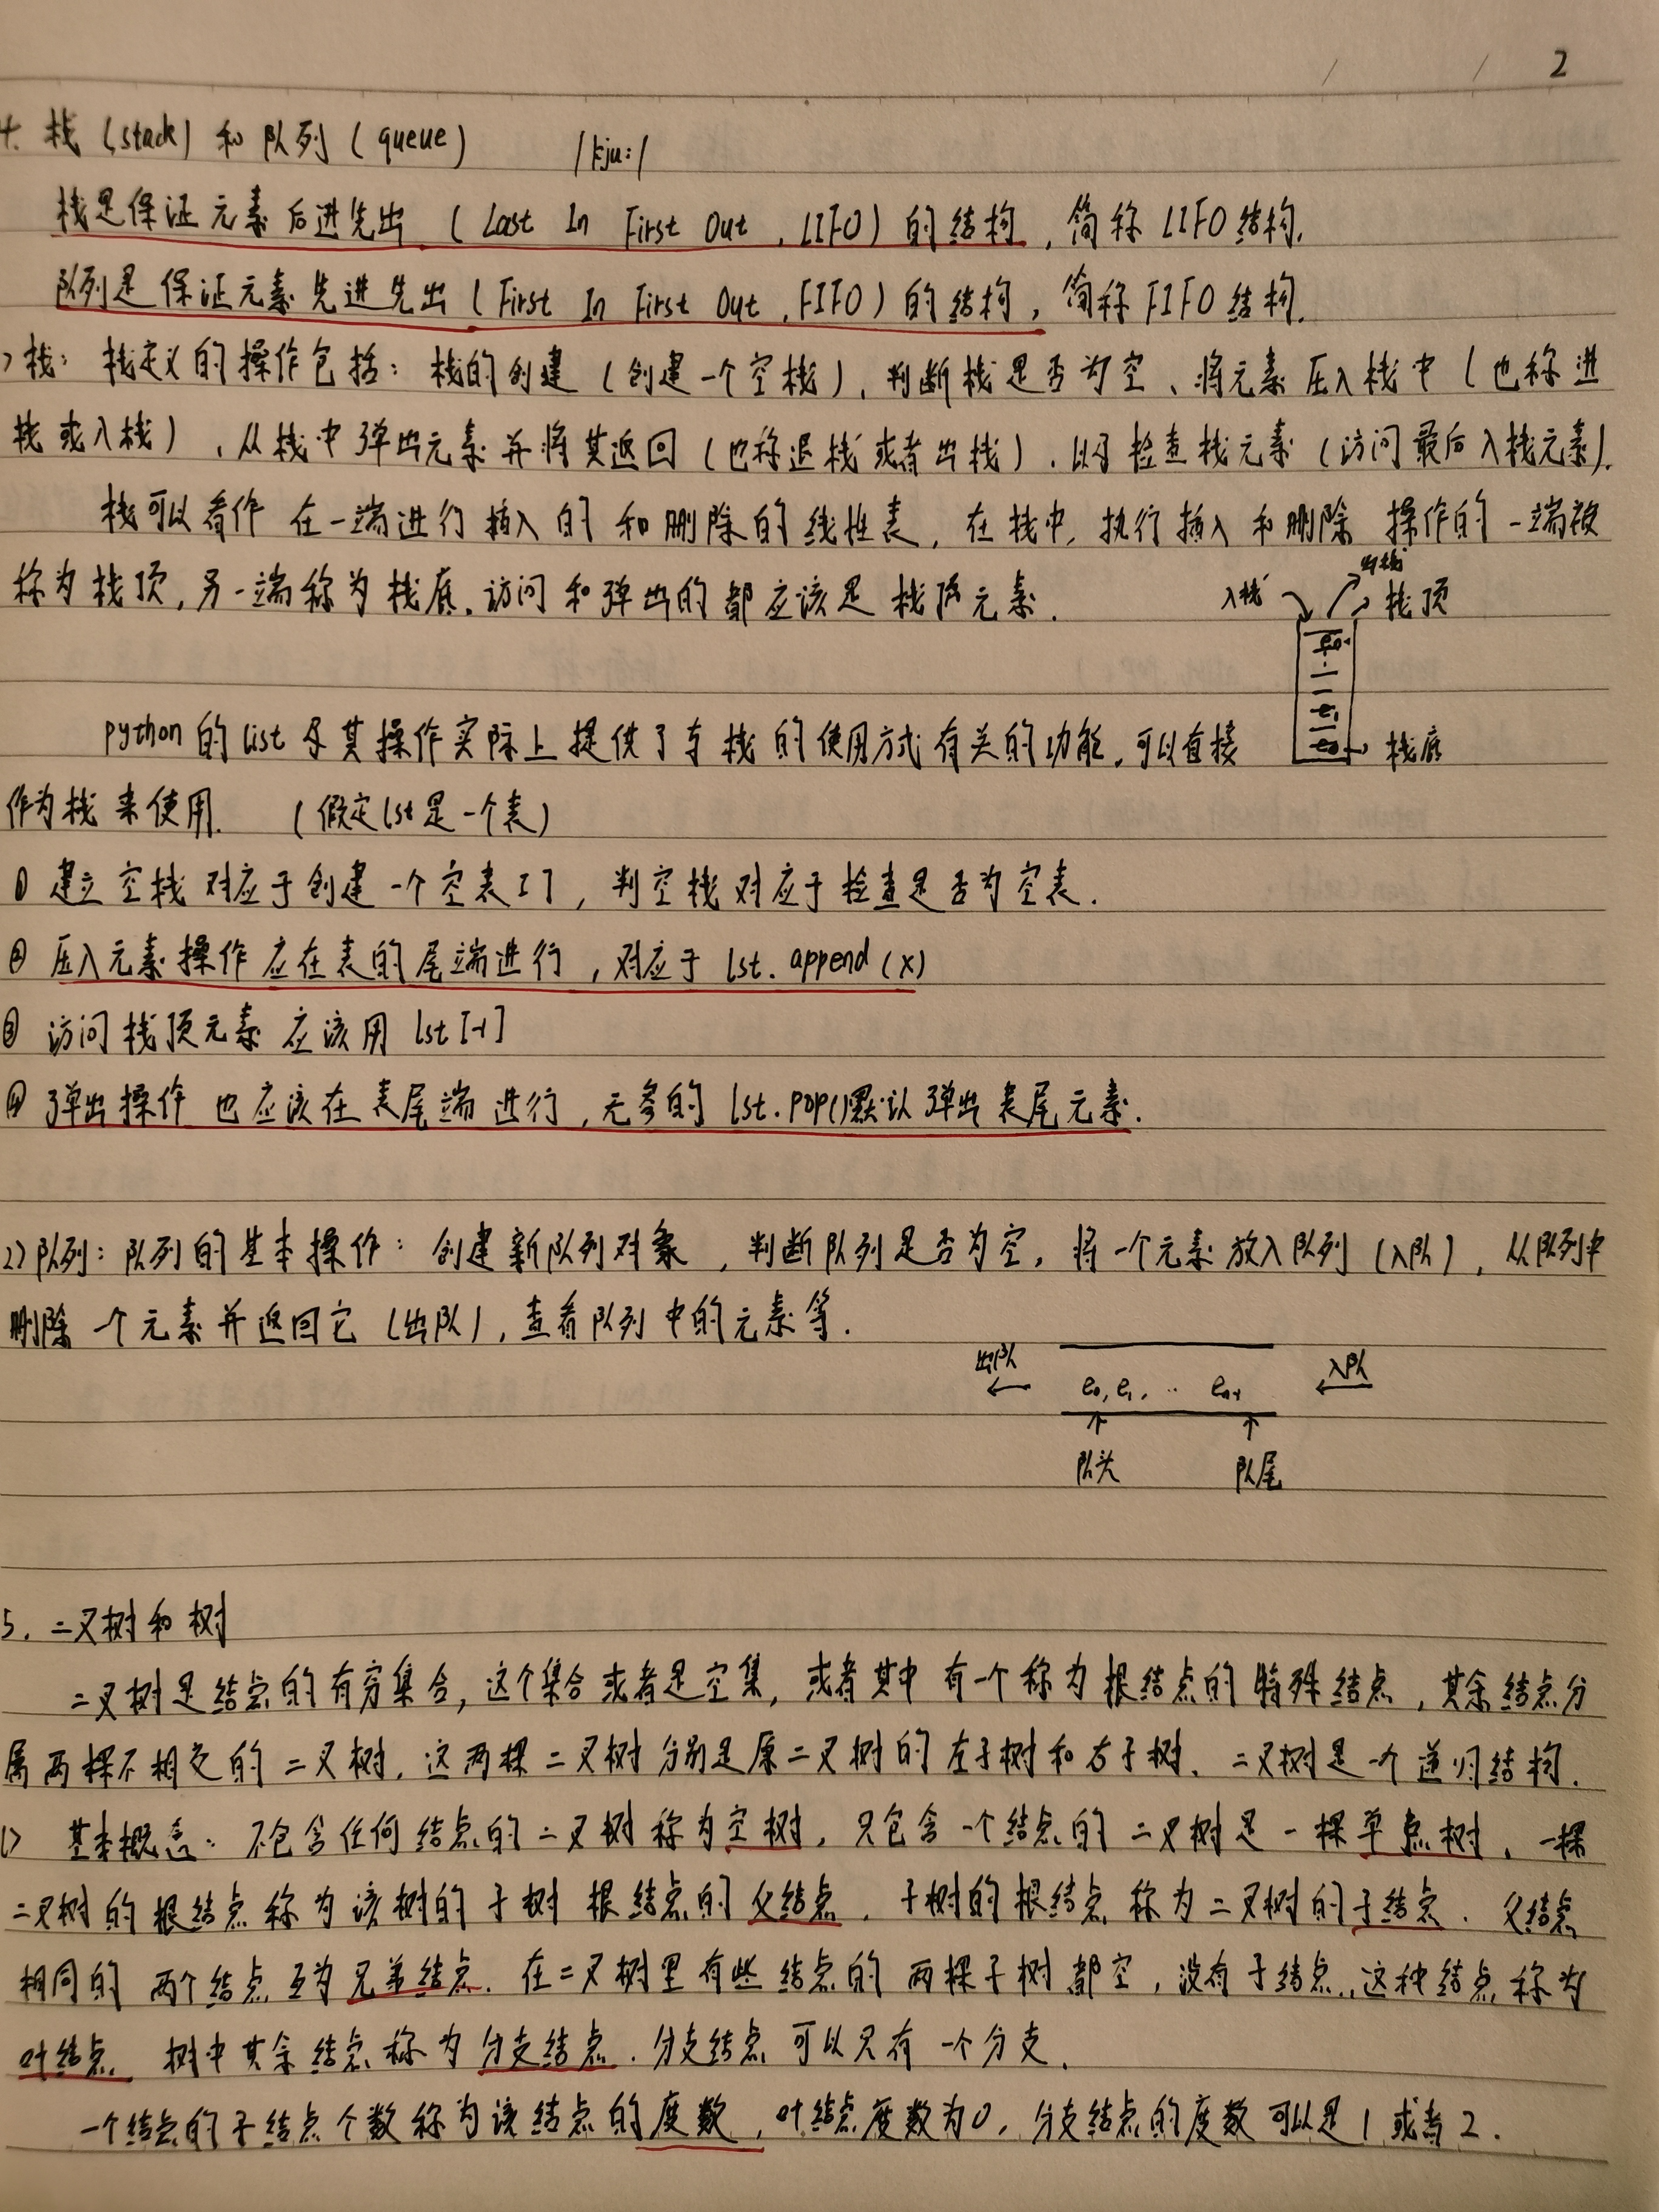 2
4. 栈 (stack) 和 队列 (queue) /kju:/
栈是保证元素后进先出 (Last In First Out, LIFO) 的结构, 简称 LIFO 结构.
队列是保证元素先进先出 (First In First Out, FIFO) 的结构, 简称 FIFO 结构.
栈: 栈定义的操作包括: 栈的创建 (创建一个空栈), 判断栈是否为空、将元素压入栈中 (也称进
栈或入栈), 从栈中弹出元素并将其返回 (也称退栈或者出栈). 以及检查栈元素 (访问最后入栈元素).
栈可以看作在一端进行插入的和删除的线性表, 在栈中, 执行插入和删除操作的一端被
称为栈顶, 另一端称为栈底. 访问和弹出的都应该是栈顶元素.
入栈 出栈 栈顶
e1
e0 栈底
python的list及其操作实际上提供了与栈的使用方式有关的功能, 可以直接
作为栈来使用. (假定lst是一个表)
① 建立空栈对应于创建一个空表[], 判空栈对应于检查是否为空表.
② 压入元素操作应在表的尾端进行, 对应于 lst.append(x)
③ 访问栈顶元素应该用 lst[-1]
④ 弹出操作也应该在表尾端进行, 无参的 lst.pop()默认弹出表尾元素.
2) 队列: 队列的基本操作: 创建新队列对象, 判断队列是否为空, 将一个元素放入队列 (入队), 从队列中
删除一个元素并返回它 (出队), 查看队列中的元素等.
出队 ← e0, e1, ·· en-1 ← 入队
↑ ↑
队头 队尾
5. 二叉树和树
二叉树是结点的有穷集合, 这个集合或者是空集, 或者其中有一个称为根结点的特殊结点, 其余结点分
属两棵不相交的二叉树, 这两棵二叉树分别是原二叉树的左子树和右子树. 二叉树是一个递归结构.
1> 基本概念: 不包含任何结点的二叉树称为空树, 只包含一个结点的二叉树是一棵单点树, 一棵
二叉树的根结点称为该树的子树根结点的父结点, 子树的根结点称为二叉树的子结点. 父结点
相同的两个结点互为兄弟结点. 在二叉树里有些结点的两棵子树都空, 没有子结点, 这种结点称为
叶结点. 树中其余结点称为分支结点. 分支结点可以只有一个分支.
一个结点的子结点个数称为该结点的度数, 叶结点度数为0, 分支结点的度数可以是1或者2.